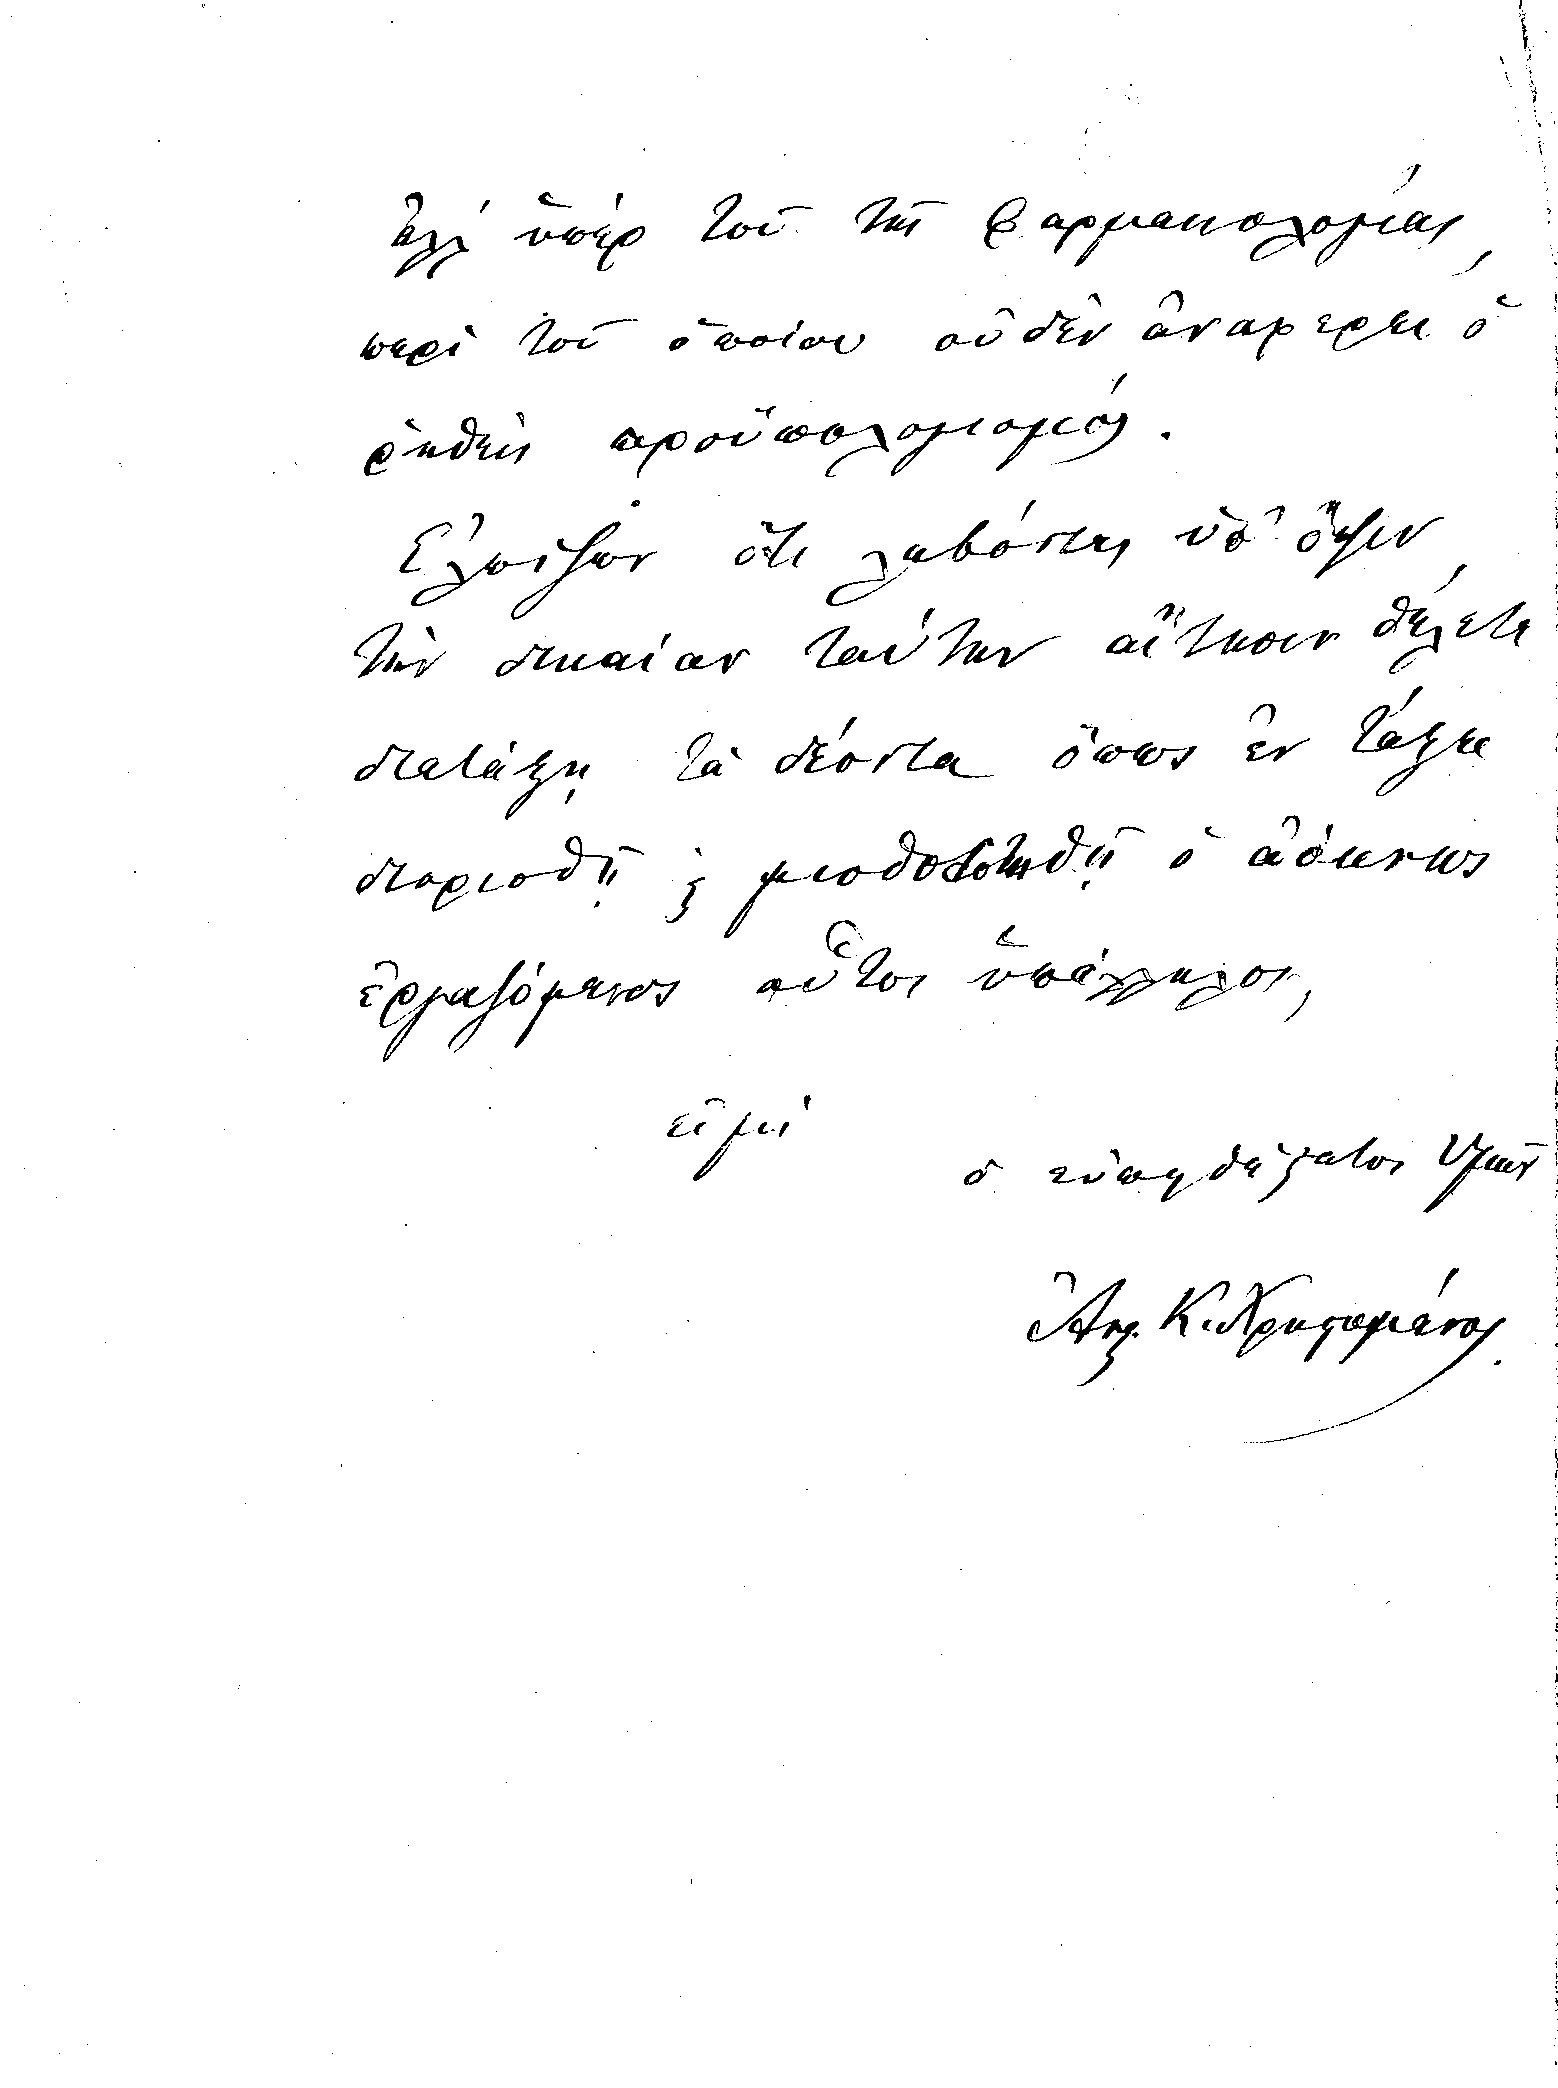 ἀλλ' ὑπὲρ τοῦ τῆς Φαρμακολογίας,
περὶ τοῦ ὁποίου οὐδὲν ἀναφέρει ὁ
ῥηθεὶς προϋπολογισμός.
Ἐλπίζων ὅτι λαβόντες ὑπ' ὄψιν
τὴν δικαίαν ταύτην αἴτησιν θέλετε
διατάξῃ τὰ δέοντα ὅπως ἐν τάξει
διορισθῇ ϗ μισθοδοτηθῇ ὁ ἀόκνως
ἐργαζόμενος οὗτος ὑπάλληλος,
εἰμὶ
ὁ εὐπειθέστατος Ὑμῶν
Ἀν. Κ. Χρηστομάνος